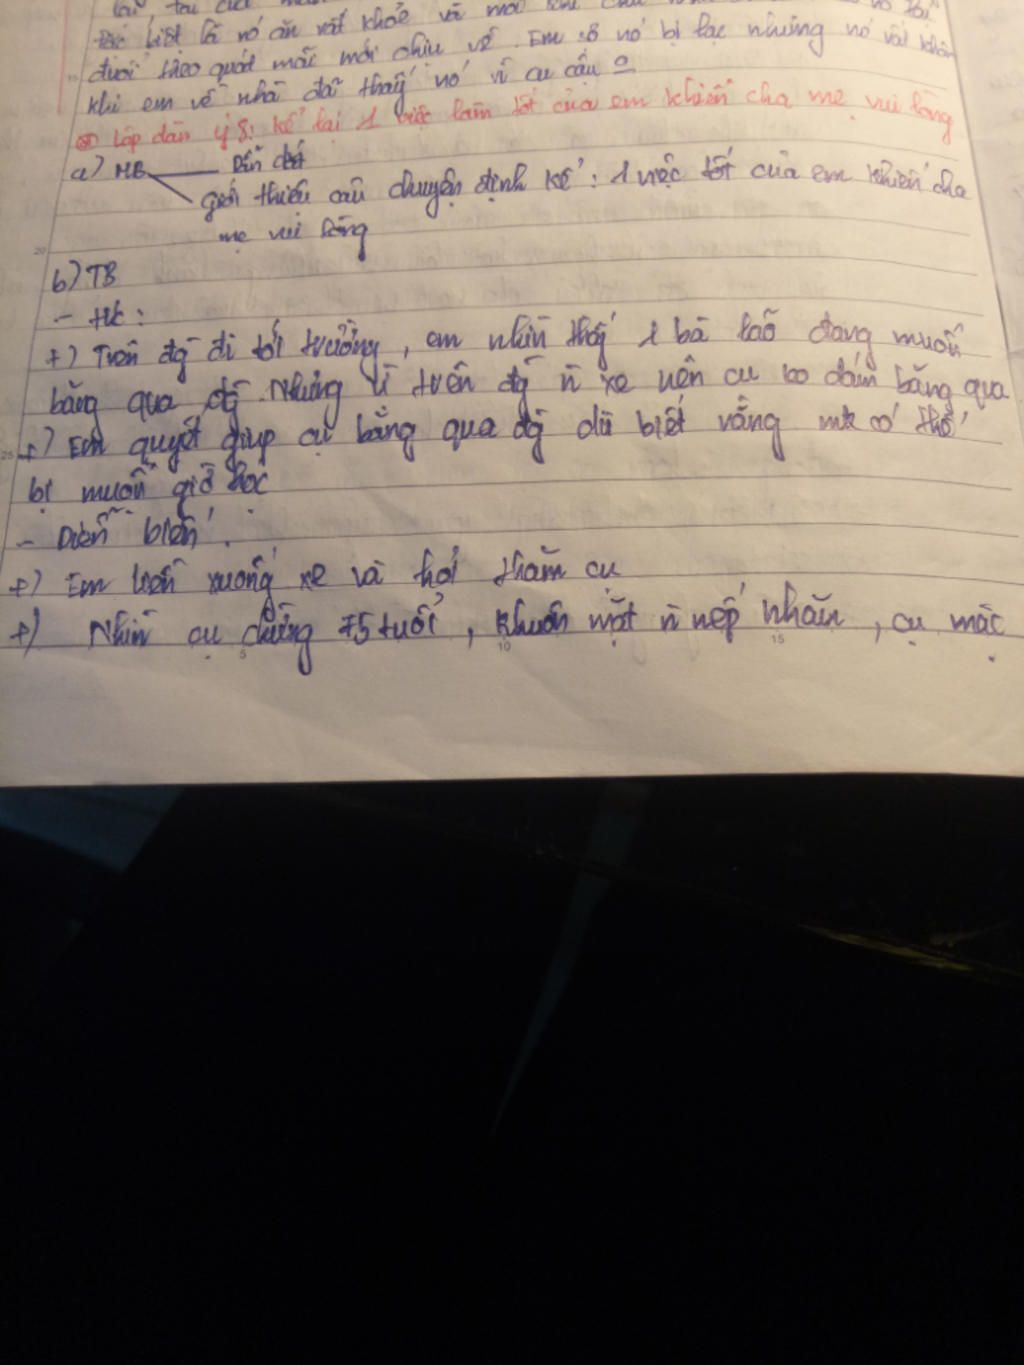 đặc biệt là nó ăn rất khoẻ và mỗi khi
đuổi theo quát mãi mới chịu về. Em sợ nó bị lạc nhưng nó vẫn
khi em về nhà đã thấy nó
Lập dàn ý 8: kể lại 1 việc làm tốt của em khiến cha mẹ vui lòng
a) MB Dẫn dắt
giới thiệu câu chuyện định kể: 1 việc tốt của em khiến cha
mẹ vui lòng
b) TB
- HC:
+) Trên đg đi tới trường, em nhìn thấy 1 bà lão đang muốn
băng qua đg. Nhưng vì trên đg n xe nên cụ ko dám băng qua
+) Em quyết giúp cụ băng qua đg dù biết rằng mk có thể
bị muộn giờ học
- Diễn biến:
+) Em liền xuống xe và hỏi thăm cụ
+) Nhìn cụ chừng 75 tuổi, khuôn mặt n nếp nhăn, cụ mặc